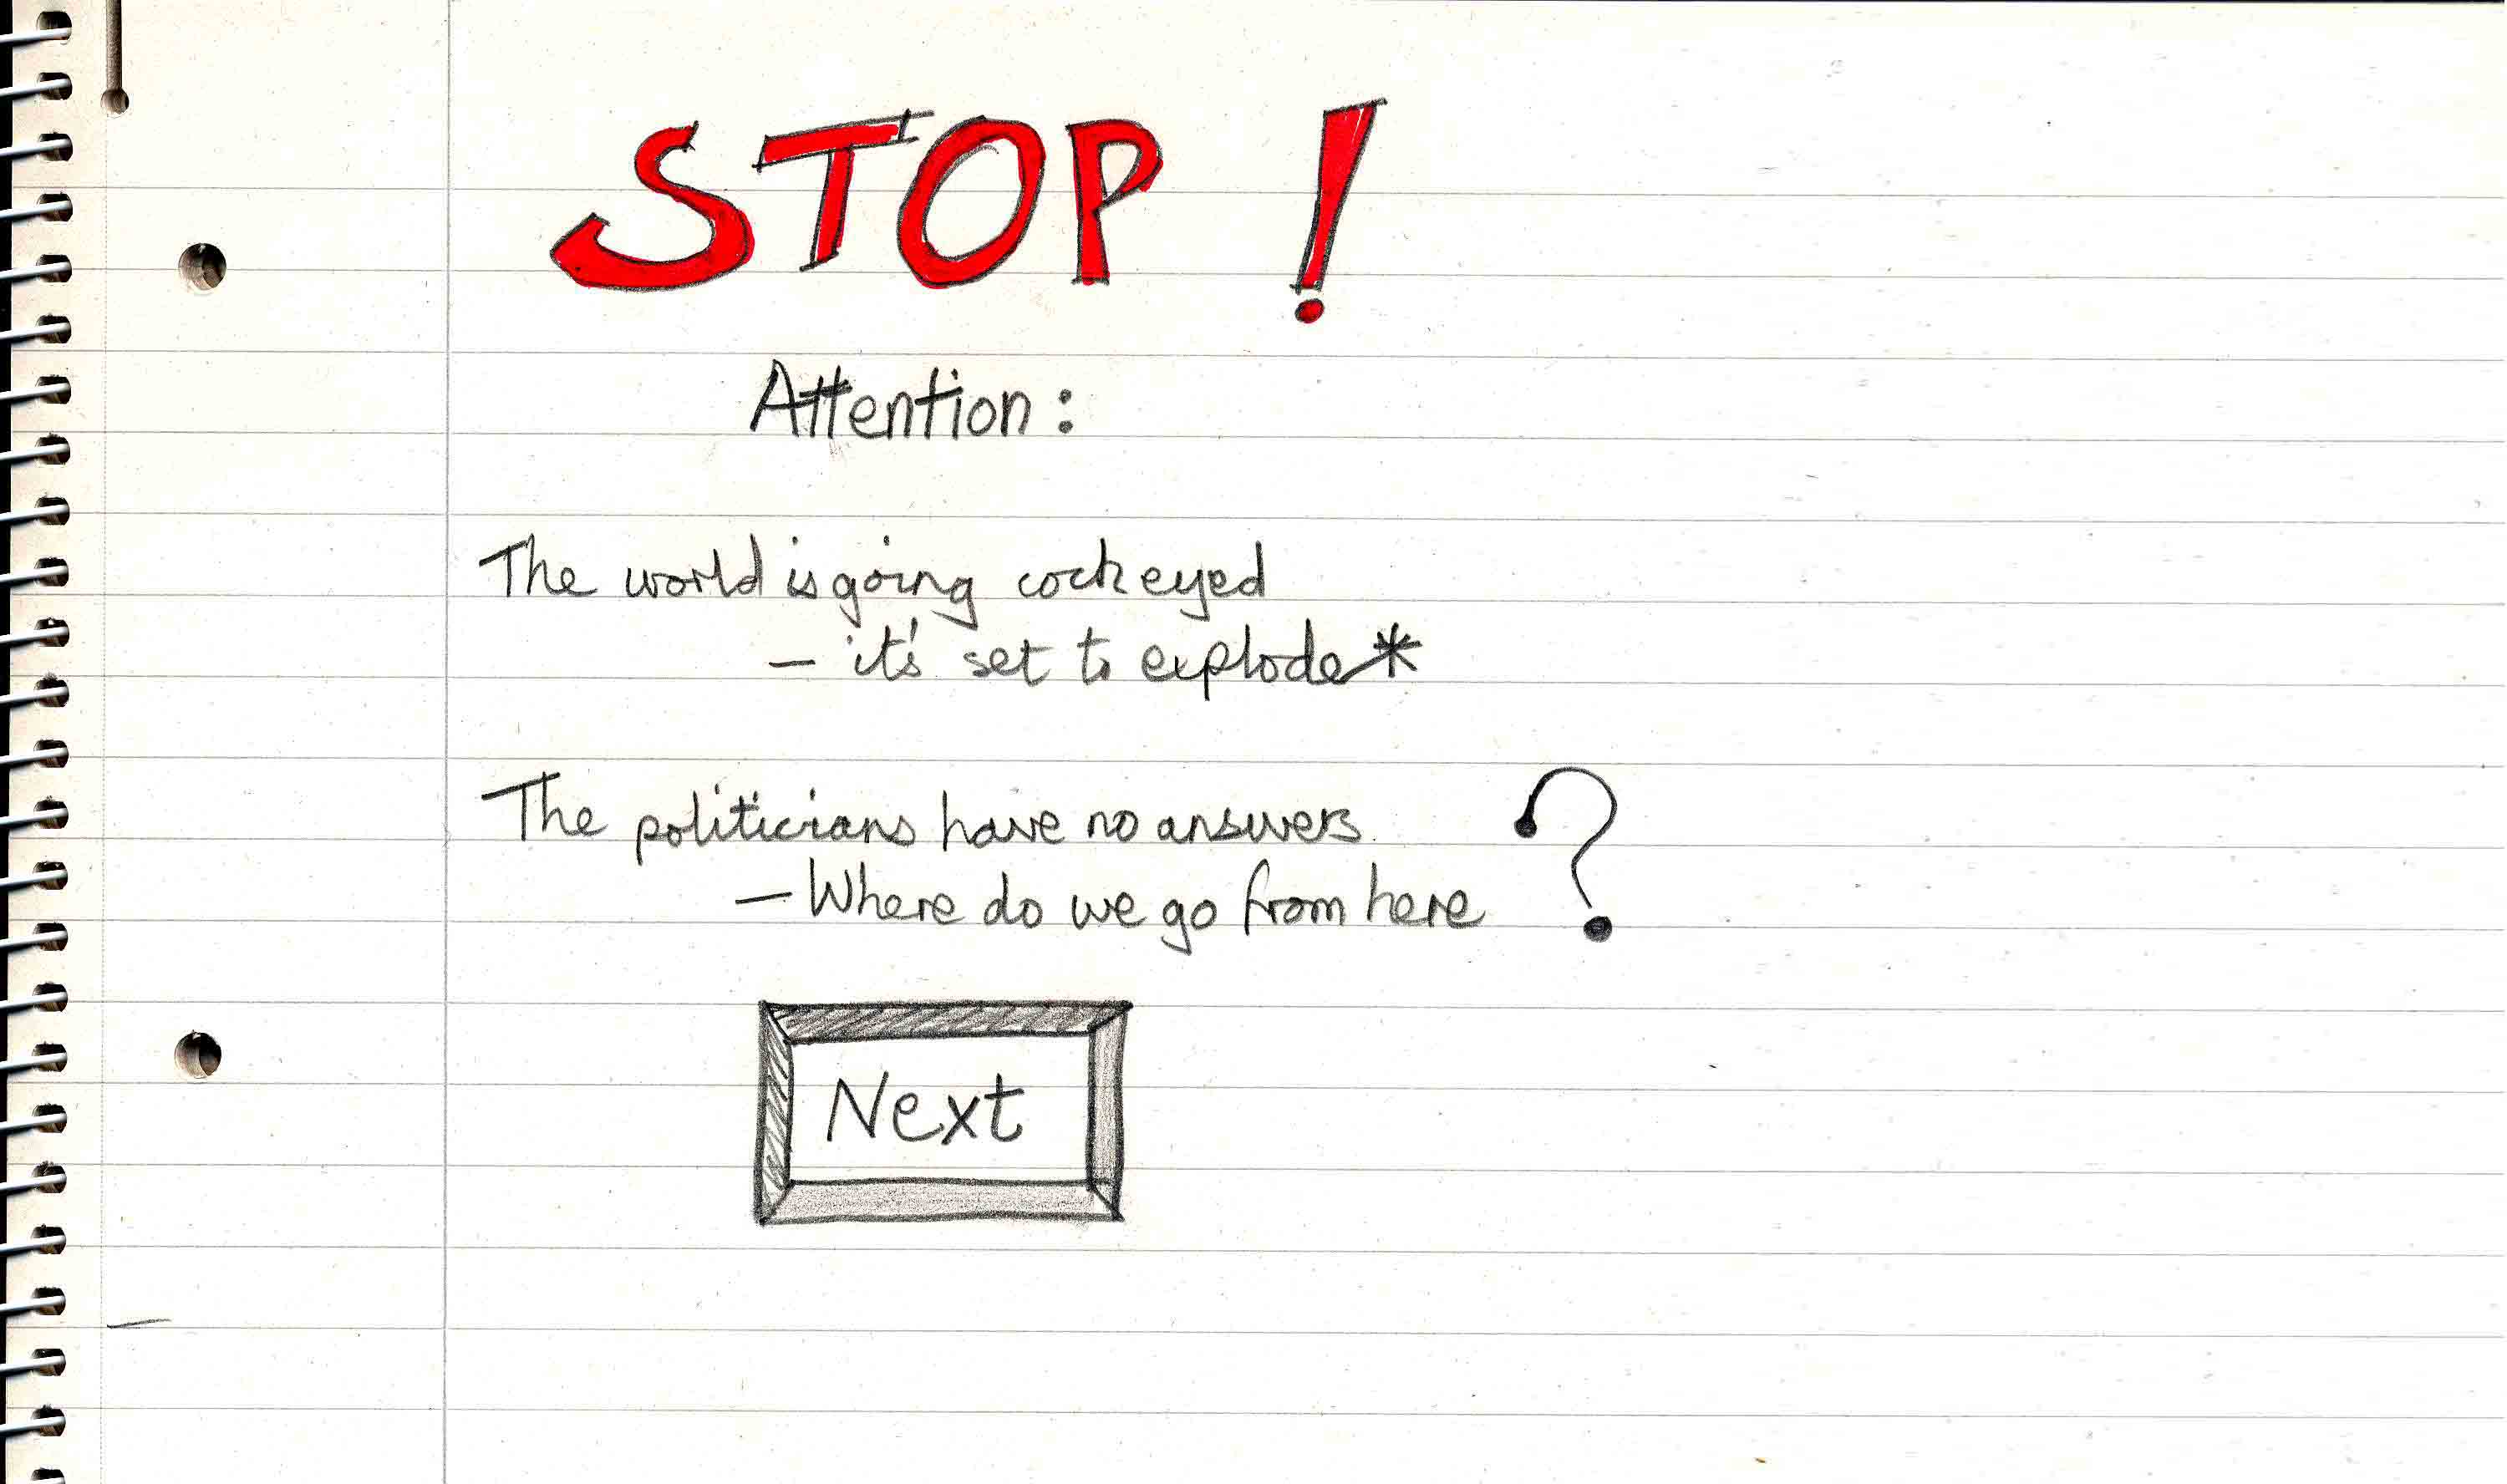 STOP!
Attention:
The world is going cockeyed
– it's set to explode*
The politicians have no answers
– Where do we go from here?
Next